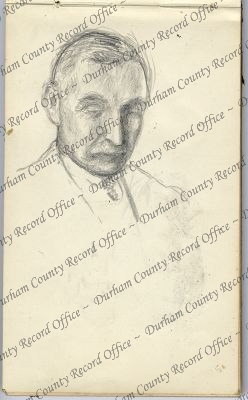 Durham County Record Office ~ Durham County Record Office ~
Durham County Record Office ~ Durham County Record Office ~
Durham County Record Office ~ Durham County Record Office ~
Durham County Record Office ~ Durham County Record Office ~
Durham County Record Office ~ Durham County Record Office ~
Durham County Record Office ~ Durham County Record Office ~